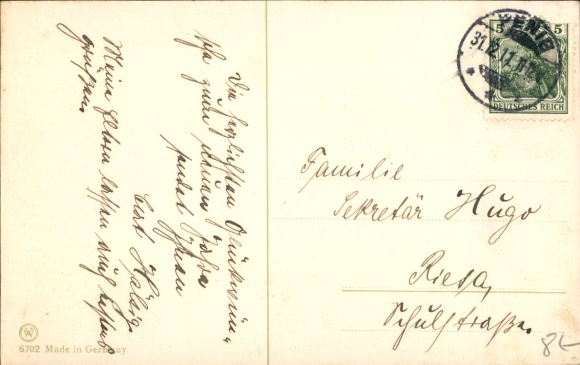 Die herzlichsten Glückwün-
sche zum neuen Jahre
sendet Ihnen
Curt
Meine Eltern lassen auch bestens
grüßen.
Familie
Sekretär Hugo
Riesa,
Schulstraße.
5 5
PENIG
31.12.11
DEUTSCHES REICH
6702 Made in Germany.